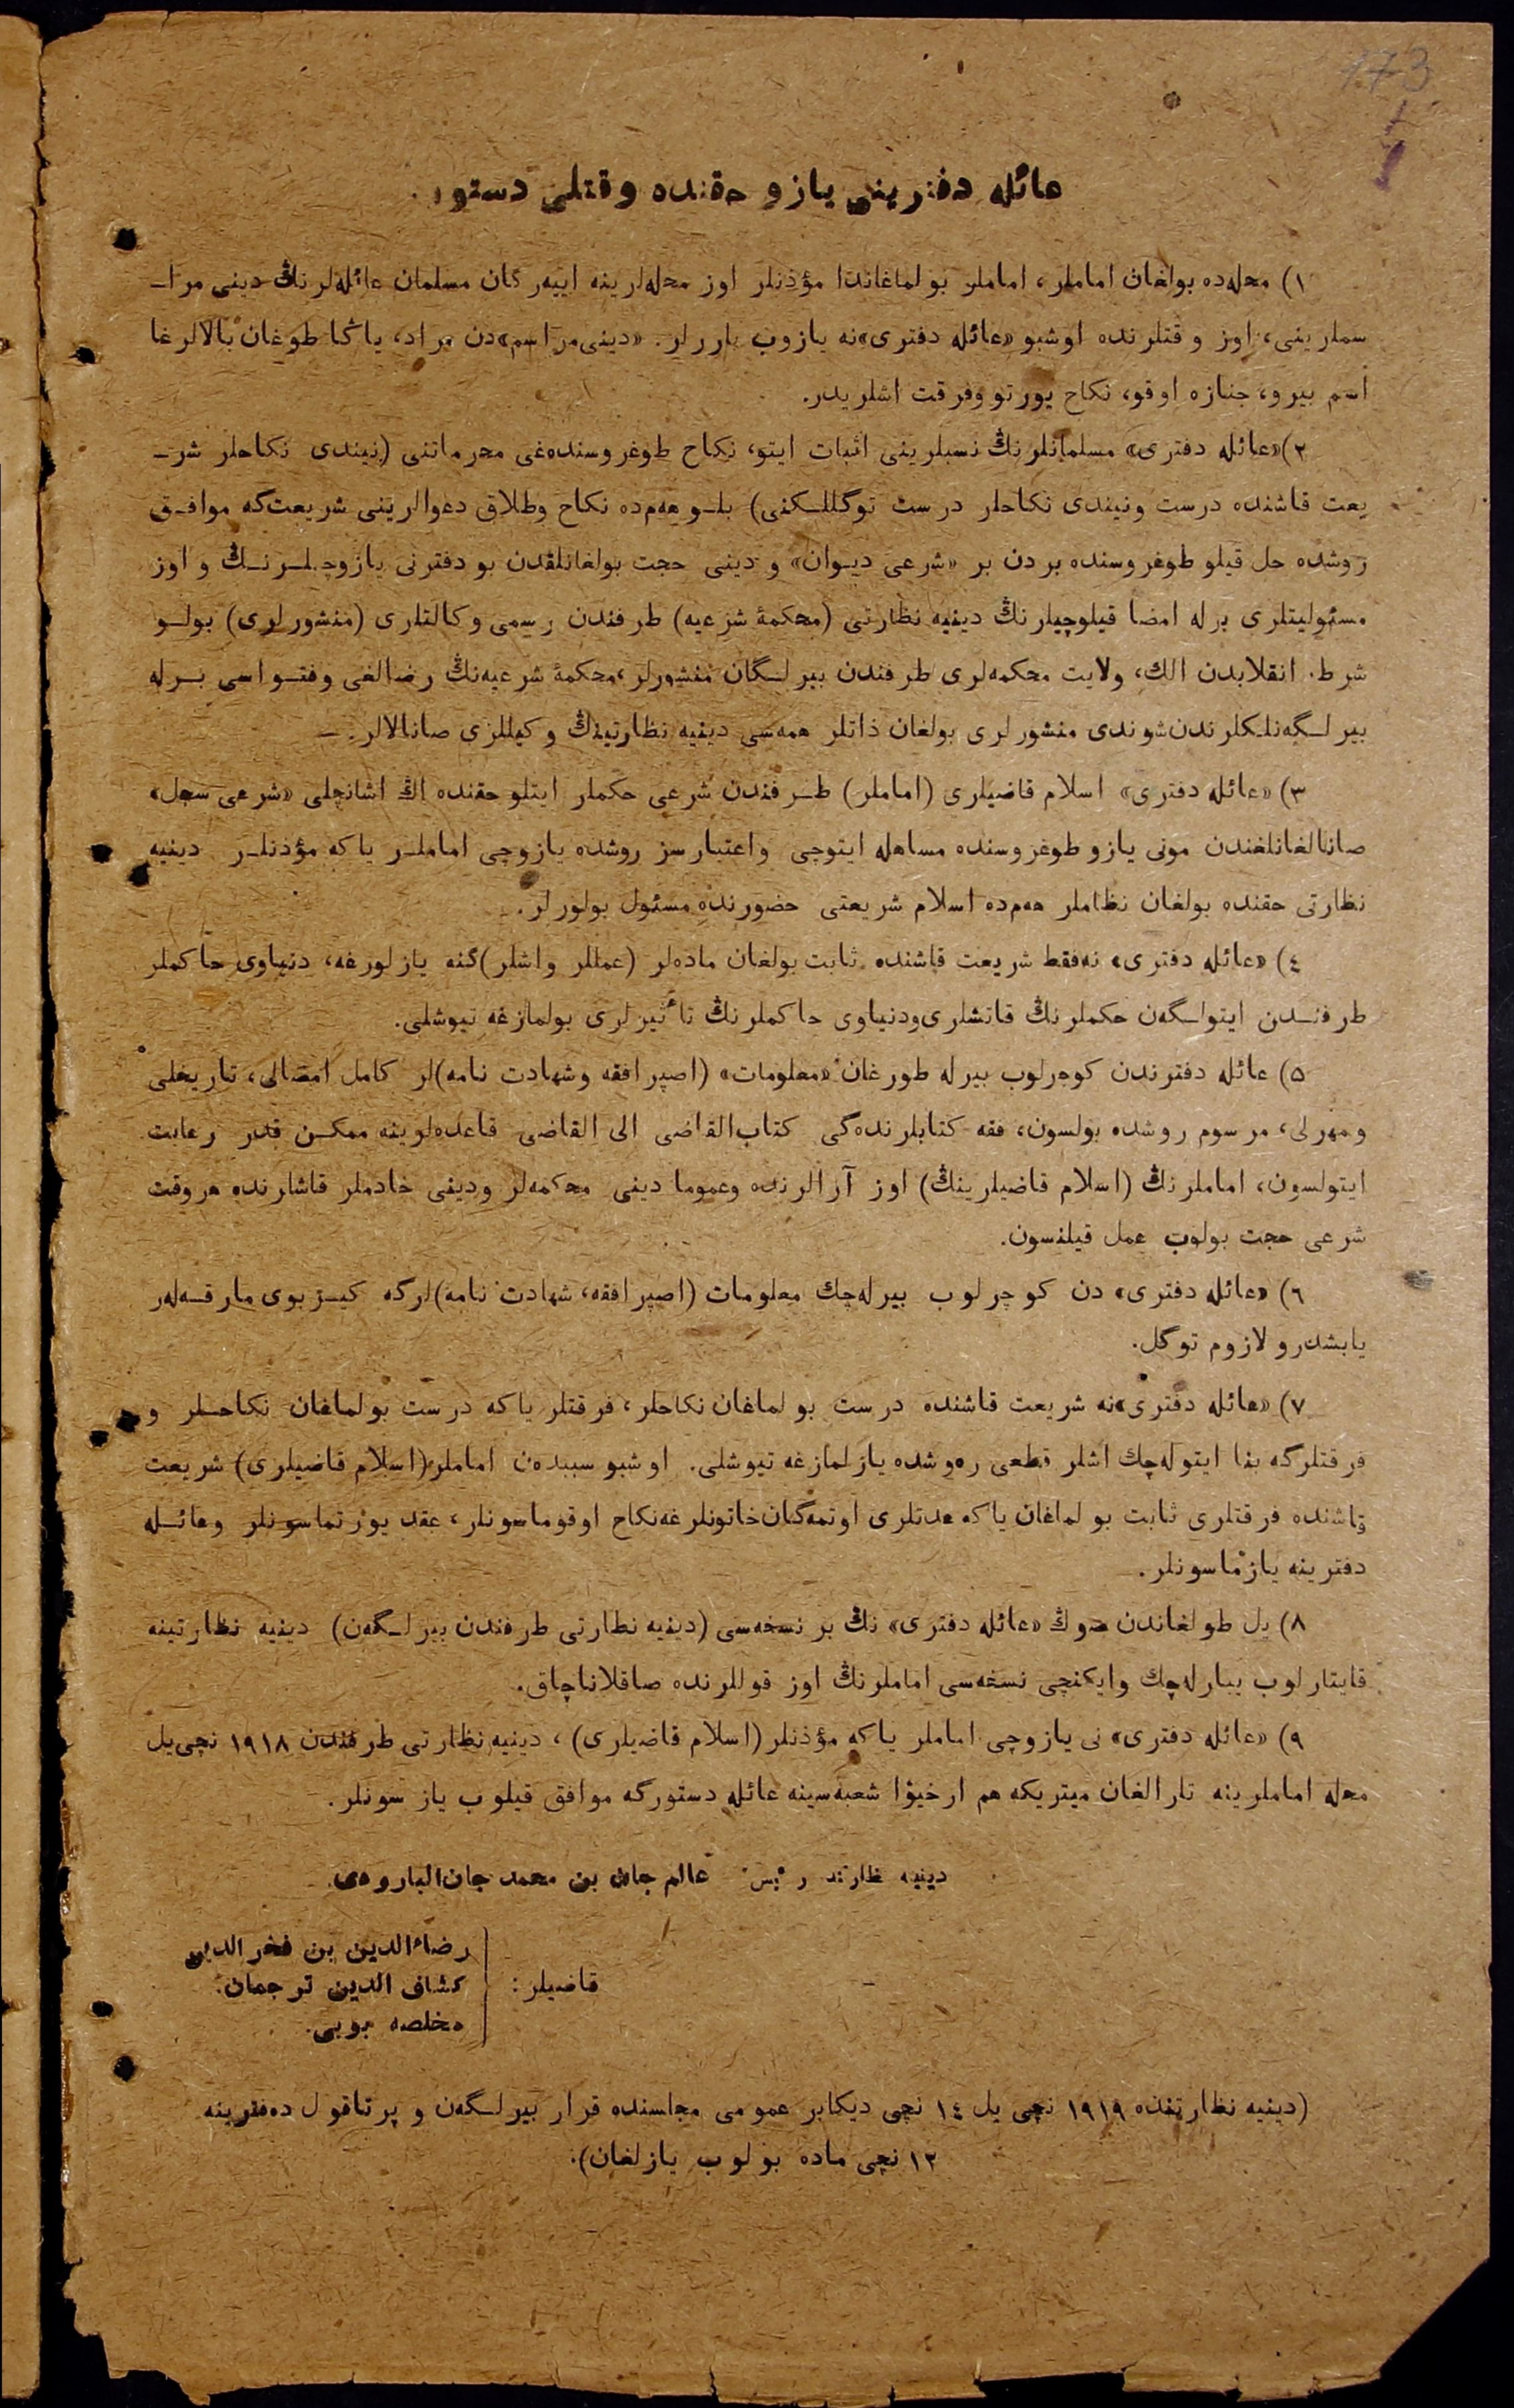 173
عائله دفترینی یازو حقنده وقتلی دستور.
١) محله‌ده بولغان اماملر، اماملر بولماغاندا مؤذنلر اوز محله‌لرینه اییه‌رگان مسلمان عائله‌لرنڭ دینی مرا‌ـ
سملرینی، اوز وقتلرنده اوشبو «عائله دفتری»نه یازوب باررلر. «دینی مراسم»دن مراد، یاڭا طوغان بالالرغا
اسم بیرو، جنازه اوقو، نکاح یورتو وفرقت اشلریدر.
٢) «عائله دفتری» مسلمانلرنڭ نسبلرینی اثبات ایتو، نکاح طوغروسنده‌غی محرماتنی (نیندی نکاحلر شر‌ـ
یعت قاشنده درست ونیندی نکاحلر درست توگللـکنی) بلـو هه‌م‌ده نکاح وطلاق دعوالرینی شریعت‌گه موافـق
روشده حل قیلو طوغروسنده بردن بر «شرعی دیـوان» و دینی حجت بولغانلقدن بو دفترنی یازوچیلـرنـڭ و اوز
مسئولیتلری برله امضا قیلوچیلرنڭ دینیه نظارتی (محکمهٔ شرعیه) طرفندن رسمی وکالتلری (منشورلری) بولـو
شرط. انقلابدن الك، ولایت محکمه‌لری طرفندن بیرلـگان منشورلر، محکمهٔ شرعیه‌نڭ رضالغی وفتـواسی بـرله
بیرلـگه‌نلـکلرندن شوندی منشورلری بولغان ذاتلر همه‌سی دینیه نظارتینڭ وکیللری صانالالر. —
٣) «عائله دفتری» اسلام قاضیلری (اماملر) طـرفندن شرعی حکملر ایتلو حقنده اڭ اشانچلی «شرعی سجل»
صانالغانلغندن مونی یازو طوغروسنده مساهله ایتوچی واعتبارسز روشده یازوچی اماملـر یاکه مؤذنلـر دینیه
نظارتی حقنده بولغان نظاملر هه‌م‌ده اسلام شریعتی حضورنده مسئول بولورلر.
٤) «عائله دفتری» نه‌فقط شریعت قاشنده ثابت بولغان ماده‌لر (عمللر واشلر)گنه یازلورغه، دنیاوی حاکملر
طرفنـدن ایتولـگه‌ن حکملرنڭ قاتشلری‌ودنیاوی حاکملرنڭ تأثیرلری بولمازغه تیوشلی.
٥) عائله دفترندن کوچرلوب بیرله طورغان «معلومات» (اصپرافقه وشهادت نامه)لر کامل امضالی، تاریخلی
ومهرلی، مرسوم روشده بولسون، فقه کتابلرنده‌گی کتاب‌القاضی الی القاضی قاعده‌لرینه ممکـن قدر رعایت
ایتولسون، اماملرنڭ (اسلام قاضیلرینڭ) اوز آرالرنده وعموما دینی محکمه‌لر ودینی خادملر قاشلرنده هروقت
شرعی حجت بولوب عمل قیلنسون.
٦) «عائله دفتری» دن کوچرلوب بیرله‌چك معلومات (اصپرافقه، شهادت نامه)لرگه کیـربوی مارقـه‌لر
یابشدرو لازوم توگل.
٧) «عائله دفتری»نه شریعت قاشنده درست بولماغان نکاحلر، فرقتلر یاکه درست بولماغان نکاحـلر و
فرقتلرگه بنا ایتوله‌چك اشلر قطعی ره‌وشده یازلمازغه تیوشلی. اوشبو سببده‌ن اماملر (اسلام قاضیلری) شریعت
قاشنده فرقتلری ثابت بولماغان یاکه عدتلری اوتمه‌گان خاتونلرغه نکاح اوقوماسونلر، عقد یورتماسونلر وعائـله
دفترینه یازماسونلر.
٨) یل طولغاندن صوڭ «عائله دفتری» نڭ بر نسخه‌سی (دینیه نظارتی طرفندن بیرلـگه‌ن) دینیه نظارتینه
قایتارلوب ییبارله‌چك وایکنچی نسخه‌سی اماملرنڭ اوز قوللرنده صاقلاناچاق.
٩) «عائله دفتری» نی یازوچی اماملر یاکه مؤذنلر (اسلام قاضیلری)، دینیه نظارتی طرفندن ١٩١٨ نچی یل
محله اماملرینه تارالغان میتریکه هم ارخیوا شعبه‌سینه عائله دستورگه موافق قیلوب یازسونلر.
دینیه نظارتی رئیسی عالم جان بن محمد جان البارودی.
رضاءالدین بن فخرالدین
قاضیلر: کشاف الدین ترجمان.
مخلصه بوبی.
(دینیه نظارتنده ١٩١٩ نچی یل ١٤ نچی دیکابر عمومی مجلسنده قرار بیرلـگه‌ن و پرتاقول ده‌فترینه
١٢ نچی ماده بولوب یازلغان).